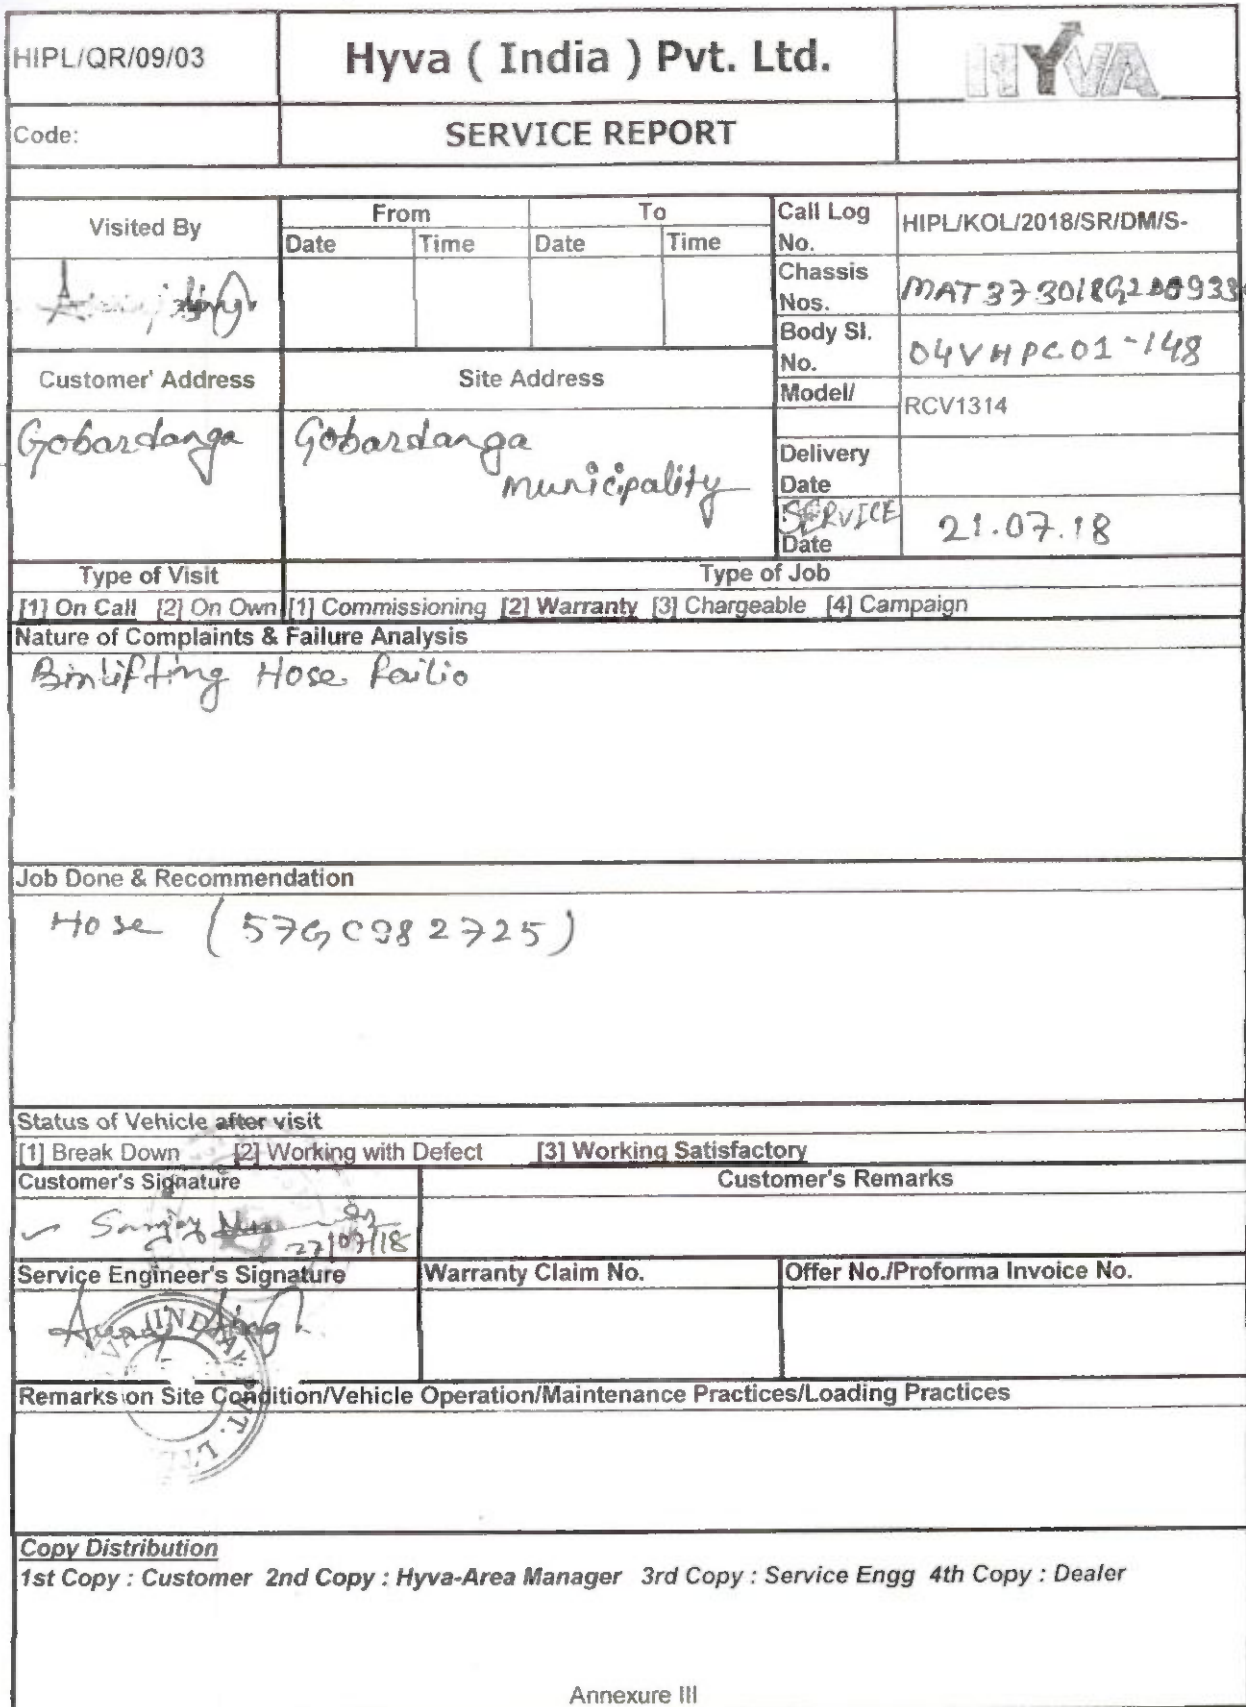 HIPL/QR/09/03
Hyva ( India ) Pvt. Ltd.
HYVA
Code:
SERVICE REPORT
Visited By
From
To
Date
Time
Date
Time
Call Log
No.
HIPL/KOL/2018/SR/DM/S-
Chassis
Nos.
Body Sl.
No.
04VHPC01-148
Customer' Address
Site Address
Model/
RCV1314
Gobardanga
Gobardanga
municipality
Delivery
Date
SERVICE
Date
21.07.18
Type of Visit
Type of Job
[1] On Call [2] On Own
[1] Commissioning [2] Warranty [3] Chargeable [4] Campaign
Nature of Complaints & Failure Analysis
Binlifting Hose
Job Done & Recommendation
Hose (57GC982725)
Status of Vehicle after visit
[1] Break Down [2] Working with Defect [3] Working Satisfactory
Customer's Signature
Customer's Remarks
Sanjay
27/07/18
Service Engineer's Signature
Warranty Claim No.
Offer No./Proforma Invoice No.
Remarks on Site Condition/Vehicle Operation/Maintenance Practices/Loading Practices
Copy Distribution
1st Copy : Customer 2nd Copy : Hyva-Area Manager 3rd Copy : Service Engg 4th Copy : Dealer
Annexure III